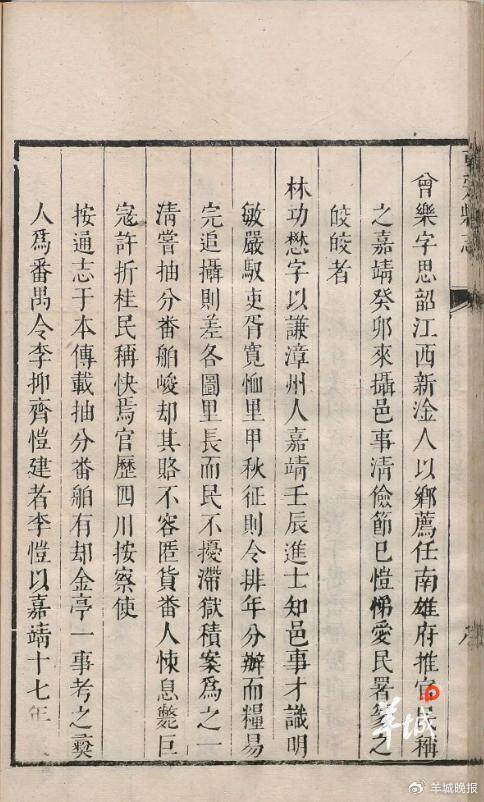 曾樂字思韶江西新淦人以鄉薦任南雄府推官民稱
之嘉靖癸卯來攝邑事清儉節巳愷悌愛民署篆之
皎皎者
林功懋字以謙漳州人嘉靖壬辰進士知邑事才識明
敏嚴馭吏胥寬恤里甲秋征則令排年分辦而糧易
完追攝則差各圖里長而民不擾滯獄積案爲之一
清嘗抽分番舶峻却其賂不容匿貨番人悚息斃巨
寇許折桂民稱快焉官歷四川按察使
按通志于本傳載抽分番舶有却金亭一事考之
人爲番禺令李抑齊愷建者李愷以嘉靖十七年
羊城
羊城晚报